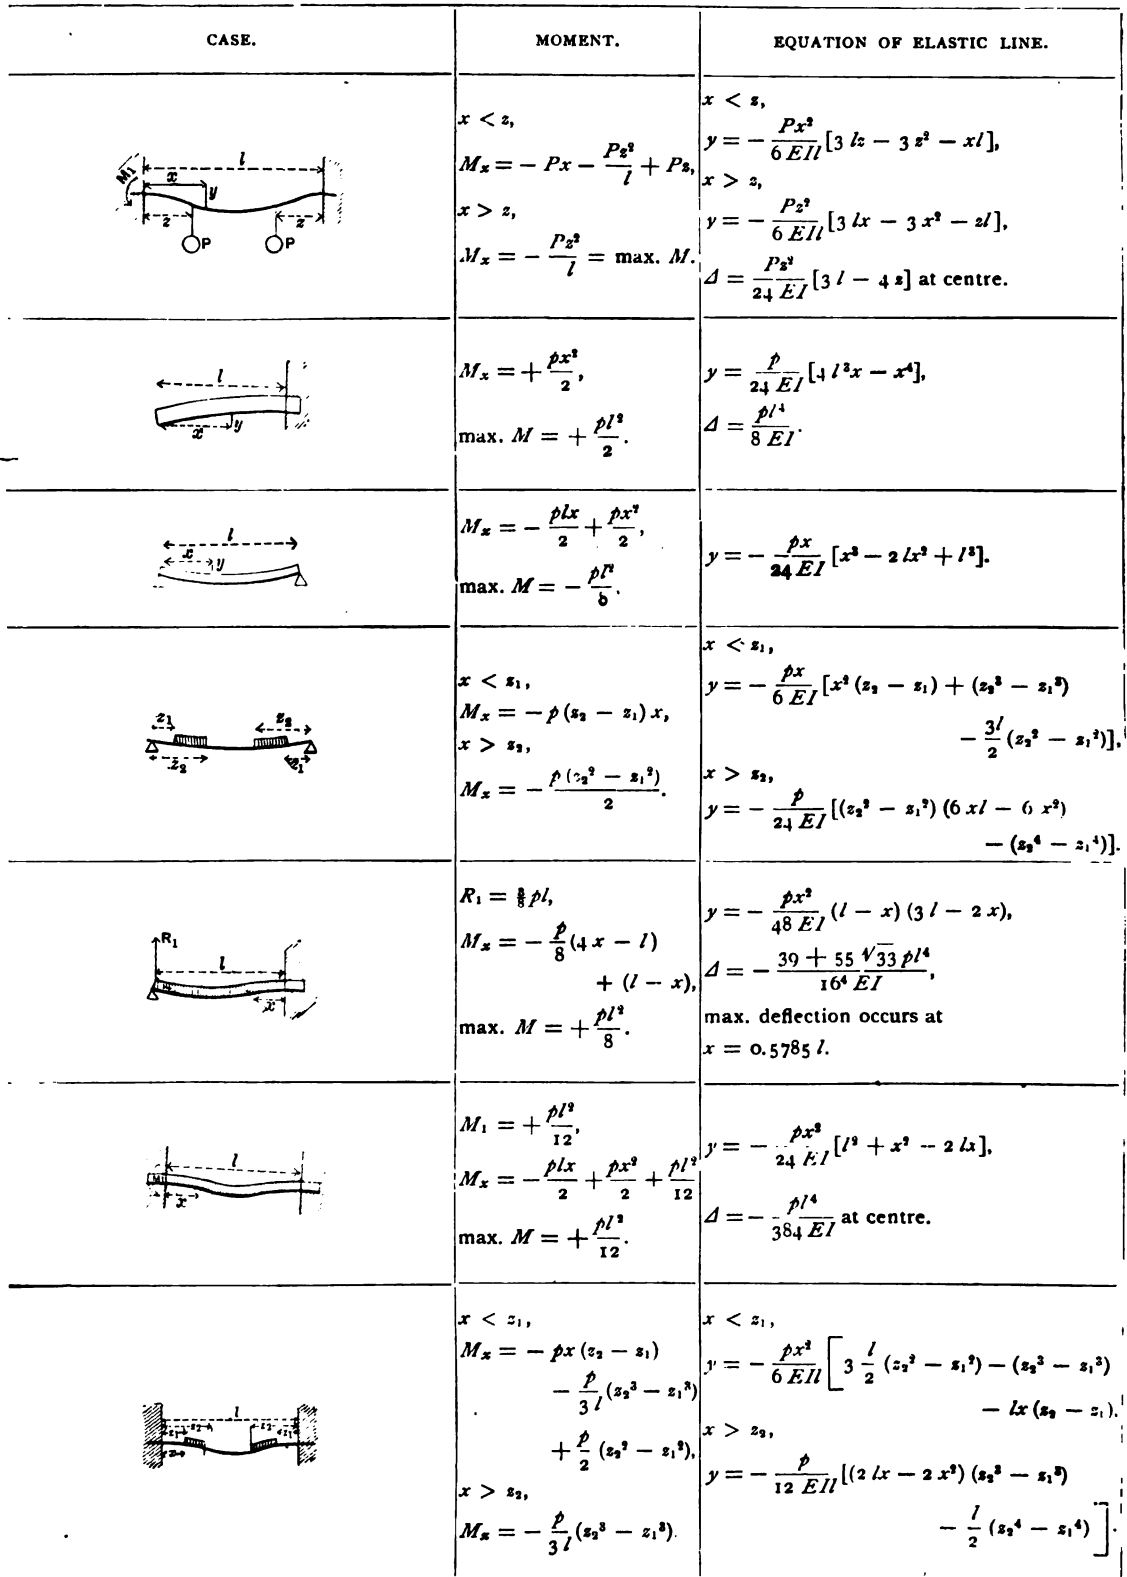 CASE. MOMENT. EQUATION OF ELASTIC LINE.
M₁ l x y z z P P
x < z,
Mₓ = − Px − Pz²/l + Pz,
x > z,
Mₓ = − Pz²/l = max. M.
x < z,
y = − Px²/6 EIl [3 lz − 3 z² − xl],
x > z,
y = − Pz²/6 EIl [3 lx − 3 x² − zl],
Δ = Pz²/24 EI [3 l − 4 z] at centre.
l x y
Mₓ = + px²/2,
max. M = + pl²/2.
y = p/24 EI [4 l³x − x⁴],
Δ = pl⁴/8 EI.
l x y
Mₓ = − plx/2 + px²/2,
max. M = − pl²/8.
y = − px/24 EI [x³ − 2 lx² + l³].
z₁ z₂ z₂ z₁
x < z₁,
Mₓ = − p (z₂ − z₁) x,
x > z₂,
Mₓ = − p (z₂² − z₁²)/2.
x < z₁,
y = − px/6 EI [x² (z₂ − z₁) + (z₂³ − z₁³)
− 3l/2 (z₂² − z₁²)],
x > z₂,
y = − p/24 EI [(z₂² − z₁²) (6 xl − 6 x²)
− (z₂⁴ − z₁⁴)].
R₁ l x
R₁ = ⅜ pl,
Mₓ = − p/8 (4 x − l)
+ (l − x),
max. M = + pl²/8.
y = − px²/48 EI (l − x) (3 l − 2 x),
Δ = − 39 + 55 √33 pl⁴/16⁴ EI,
max. deflection occurs at
x = 0.5785 l.
l x
M₁ = + pl²/12,
Mₓ = − plx/2 + px²/2 + pl²/12
max. M = + pl²/12.
y = − px²/24 EI [l² + x² − 2 lx],
Δ = − pl⁴/384 EI at centre.
l z₂ z₂ z₁ z₁ x
x < z₁,
Mₓ = − px (z₂ − z₁)
− p/3 l (z₂³ − z₁³)
+ p/2 (z₂² − z₁²),
x > z₂,
Mₓ = − p/3 l (z₂³ − z₁³).
x < z₁,
y = − px²/6 EIl [3 l/2 (z₂² − z₁²) − (z₂³ − z₁³)
− lx (z₂ − z₁),
x > z₂,
y = − p/12 EIl [(2 lx − 2 x²) (z₂³ − z₁³)
− l/2 (z₂⁴ − z₁⁴)].